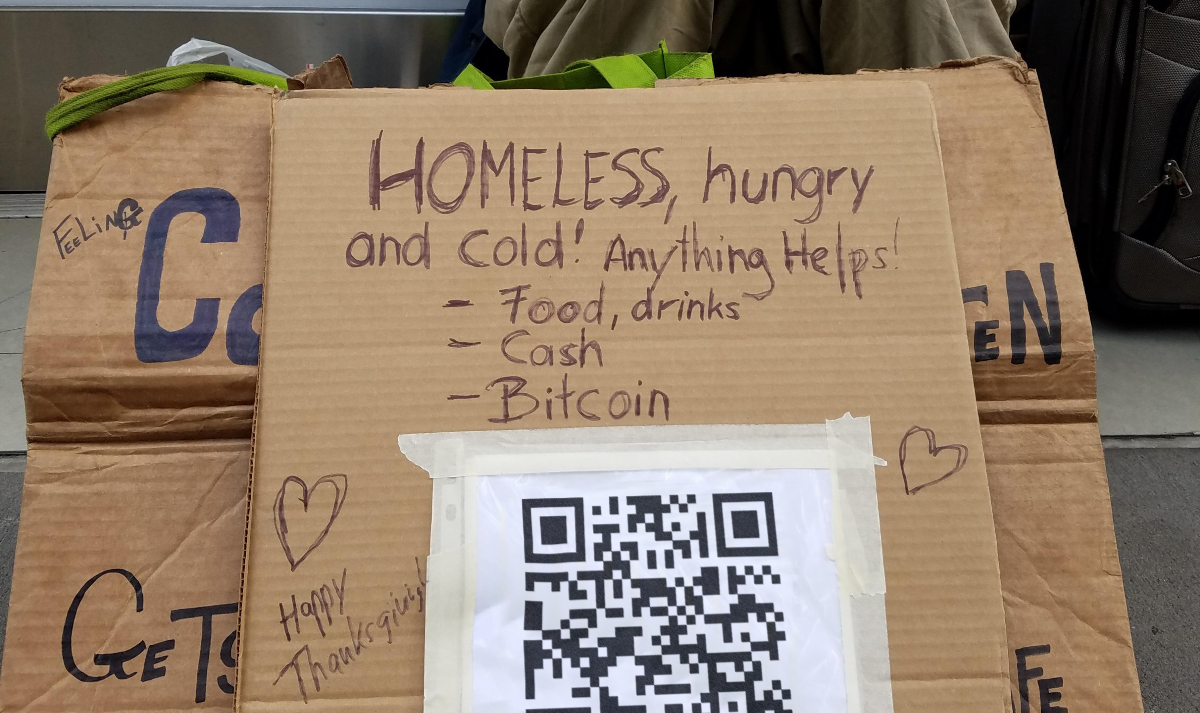 HOMELESS, hungry
and cold! Anything Helps!
- Food, drinks
- Cash
- Bitcoin
Happy
Thanksgiving!
FEELiNG
GETS